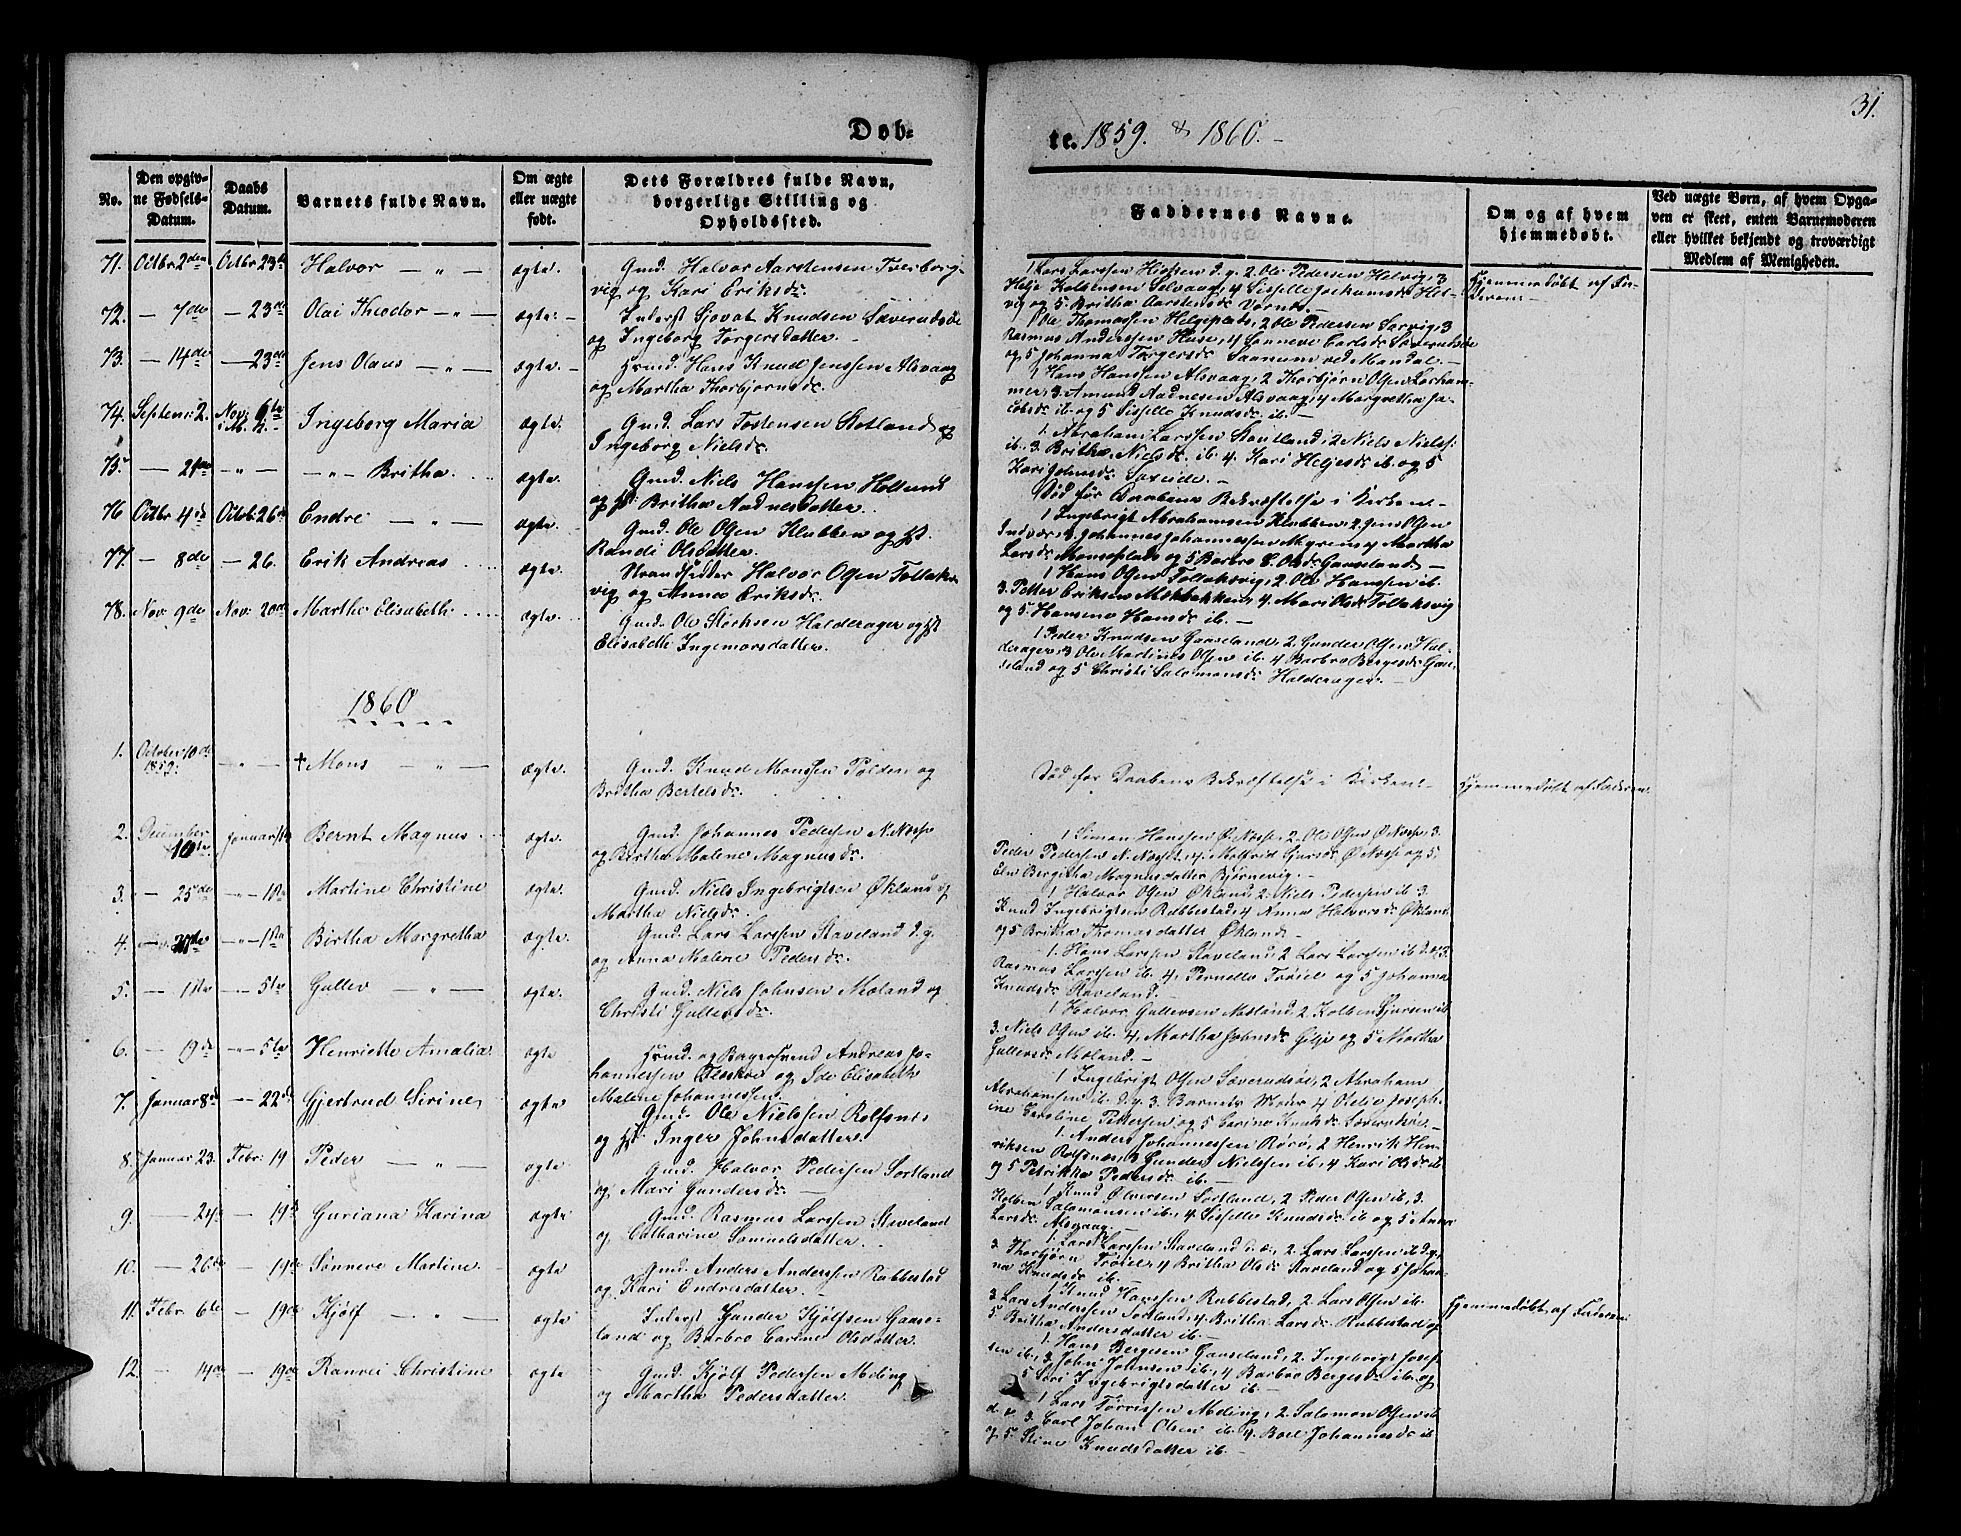 31.
Døb-
te. 1859. & 1860.-
No.
Den opgiv-
ne Fødsels-
Datum.
Daabs
Datum.
Barnets fulde Navn.
Om ægte
eller uægte
født.
Dets Forældres fulde Navn,
borgerlige Stilling og
Opholdssted.
Faddernes Navne.
Om og af hvem
hjemmedøbt.
Ved uægte Børn, af hvem Opga-
ven er skeet, enten Barnemoderen
eller hvilket bekjendt og troværdigt
Medlem af Menigheden.
71. Octbr. 2den Octbr 23de Halvor — „ — ægte. Gmd. Halvor Aarstensen Tverborg-
vig og Kari Eriksdr.
1 Lars Larssen Hissen d.y. 2. Ole Pedersen Helvig, 3
Helje Kolbensen Selvaag, 4 Sisselle Jochumsdr. Hel-
vig og 5 Britha Aarstensdr. Vornes.
Hjemmedøbt af Fa-
deren.-
72. — 7de — 23de Olai Theodor — „ — ægte. - Inderst Sjovat Knudsen Sæverudsøe
og Ingeborg Torgersdatter. -
1 Ole Thomassen Helgeplads, 2 Ole Pedersen Sørvig, 3
Rasmus Anderssen Huse, 4 Sønneve Carlsdr. Sæverudsøe
og 5 Johanna Torgersdr. Saanum ved Mandal. -
73. — 14de — 23de Jens Olaus — „ — ægte. - Huusmd. Hans Knud Jenssen Alsvaag
og Martha Thorbjørnsdr.
1 Hans Hanssen Alsvaag, 2 Thorbjørn Olsen Lorham-
mer, 3. Amund Aadnesen Alsvaag, 4 Margretha Ja-
cobsdr. ib. og 5 Sisselle Knudsdr. ib. -
74. Septem: 2. Nov: 6te Ingeborg Maria ægte. Gmd. Lars Tostensen Stotland og
Ingeborg Nielsdr.
1. Abraham Larssen Stoutland, 2 Niels Nielss:
ib. 3. Britha Nielsdr. ib. 4. Kari Heljesdr. ib. og 5
Kari Johnsdr. Sæveide. -
75 — 21de — „ — — „ — Britha. ægte. Gmd. Niels Hanssen Hollund
og H: Britha Aadnesdatter.
Død før Daabens Bekræftelse i Kirken. -
76 Octbr 4de Octob: 26de Endre — „ — ægte. Gmd. Ole Olsen Klubben og H.
Randi Olsdatter.
1 Ingebrigt Abrahamsen Klubben, 2. Jens Olsen
Indvær, 3. Johannes Johannessen Møgrem, 4 Martha
Larsdr. Monseplads og 5 Barbro E. Olsdr. Gaaseland. -
77. — 8de — 26. Erik Andreas ægte. Strandsidder Halvor Olsen Tollaks-
vig og Anna Eriksdr.
1 Hans Olsen Tollaksvig, 2. Ole Hanssen ib.
3. Petter Eriksen Mækbakken, 4. Mari Olsdr. Tollaksvig
og 5 Hansine Hansdr. ib. -
78. Nov: 9de Nov: 20de Martha Elisabeth ægte. Gmd. Ole Stephsen Halderager og H
Elisabeth Ingemorsdatter.
1 Peder Knudsen Gaaseland, 2. Gunder Olsen Hal-
derager, 3 Ole Martinus Olsen ib. 4 Barbro Bergesdr. Gaa-
seland og 5 Christi Salomonsdr. Halderager. -
1860
1. October 10de
1859. „ — † Mons — „ — ægte. Gmd. Knud Monssen Tolden og
Britha Bertelsdr.
Død før Daabens Bekræftelse i Kirken. - Hjemmedøbt af Faderen.
2. December
16te Januar 1te Bernt Magnus ægte. Gmd. Johannes Pedersen N. Nosse
og Birtha Malene Magnusdr.
1. Simon Hanssen Ø. Nosse, 2. Ole Olsen Ø. Nosse, 3.
Peder Pedersen N. Nosse, 4. Malfrid Gursdr. Ø. Nosse og 5.
Eln Bergitha Magnusdatter Bjørnevig. -
3. — 25de — „ — 1te Martine Christine ægte Gmd. Niels Ingebrigtsen Økland og
Martha Nielsdr.
1 Halvor Olsen Økland, 2. Niels Pedersen ib. 3.
Knud Ingebrigtsen Rubbestad, 4 Anna Halvorsdr. Økland
og 5 Britha Thomasdatter Økland. -
4. — 20de — „ — 1ste Birtha Margretha ægte. Gmd. Lars Larssen Staveland d.y.
og Anna Malene Pedersdr.
1. Hans Larssen Staveland, 2 Lars Larssen ib. d.æ. 3.
Rasmus Larssen ib. 4. Pernelle Trøien og 5 Johanna
Knudsdr. Staveland. -
5. — 1ste — „ — 5te Gullev — „ — ægte. Gmd. Niels Johnsen Møland og
Christi Gullevsdr.
1. Halvor Gullevsen Møland, 2. Kolben Gjursen ib
3. Niels Olsen ib. 4, Martha Johnsdr. Gilje og 5 Martha
Gullevsdr. Møland. -
6. — 19de — „ — 5te Henriette Amalia ægte Huusmd. og Bagersvend Andreas Jo-
hannessen Fleskeø og Ide Elisabeth
Malene Johannessen.
1 Ingebrigt Olsen Sæverudsøe, 2 Abraham
Abrahamsen ib. d.y. 3. Barnets Moder 4 Oelie Joseph-
ine Caroline Pettersen og 5 Carine Knudsdr. Sæverudsøe. -
7. Januar 8de — „ — 22de Gjertrud Sirine, ægte Gmd. Ole Nielssen Rolfsnes
og H: Inger Johnsdatter.
1. Anders Johannessen Rørø, 2 Henrik Hen-
riksen Rolfsnes, 3 Gunder Nielssen ib. 4 Kari Olsdr. ib
og 5 Petrikka Pedersdr. ib. -
8. Januar 23. Febr: 19 Peder — „ — ægte Gmd. Halvor Pedersen Sortland
og Mari Gundersdr. —
1. Knud Ølversen Sortland, 2 Peder Olsen ib, 3.
Kolben Salamonsen ib. 4 Sisselle Knudsdr. ib og 5 Anna
Larsdr. Alsvaag. -
9. — 24de — 19de Guriana Karina ægte Gmd. Rasmus Larssen Staveland
og Catharine Sammelsdatter. -
1. Lars Larssen Staveland d.æ., 2. Lars Larssen ib. d.y.
3. Thorbjørn Trøien, 4 Britha Olsdr. Staveland og 5 Johan-
na Knudsdr. ib. -
10. — 26de — 19de Sønneve Martine ægte Gmd. Anders Anderssen Rubbestad
og Kari Endresdatter. -
1. Knud Hanssen Rubbestad, 2. Lars Olsen ib.
3. Lars Anderssen Sortland, 4 Britha Larsdr. Rubbestad og
5. Britha Andersdatter ib. -
11. Febr. 6te — 19de Kjølf — „ — ægte Inderst Gunder Kjølfsen Gaase-
land og Barbro Carine Olsdatter.
1. Hans Bergesen Gaaseland, 2. Ingebrigt Josef-
sen ib, 3 John Johnsen ib, 4 Barbro Bergesdr. ib. og
5 Sori Ingebrigtsdatter ib. -
Hjemmedøbt af Faderen.
12. — 14de — 19de Ranvei Christine ægte Gmd. Kjølf Pedersen Meling
og Martha Pedersdatter.
1 Lars Tørrissen Meling, 2. Salamon Olsen ib
d.æ 3. Carl Johan Olsen ib. 4. Boel Johannesdr. ib
og 5. Stine Knudsdatter ib. -